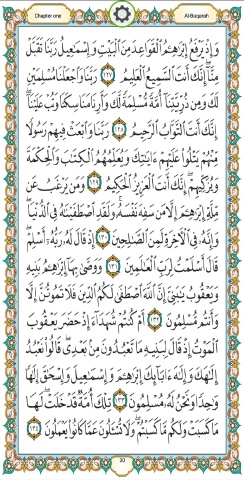 Chapter one
Al-Baqarah
وَإِذْ يَرْفَعُ إِبْرَٰهِـۧمُ ٱلْقَوَاعِدَ مِنَ ٱلْبَيْتِ وَإِسْمَـٰعِيلُ رَبَّنَا تَقَبَّلْ
مِنَّآ إِنَّكَ أَنتَ ٱلسَّمِيعُ ٱلْعَلِيمُ ١٢٧ رَبَّنَا وَٱجْعَلْنَا مُسْلِمَيْنِ
لَكَ وَمِن ذُرِّيَّتِنَآ أُمَّةً مُّسْلِمَةً لَّكَ وَأَرِنَا مَنَاسِكَنَا وَتُبْ عَلَيْنَآ
إِنَّكَ أَنتَ ٱلتَّوَّابُ ٱلرَّحِيمُ ١٢٨ رَبَّنَا وَٱبْعَثْ فِيهِمْ رَسُولًا
مِّنْهُمْ يَتْلُوا۟ عَلَيْهِمْ ءَايَـٰتِكَ وَيُعَلِّمُهُمُ ٱلْكِتَـٰبَ وَٱلْحِكْمَةَ
وَيُزَكِّيهِمْ إِنَّكَ أَنتَ ٱلْعَزِيزُ ٱلْحَكِيمُ ١٢٩ وَمَن يَرْغَبُ عَن
مِّلَّةِ إِبْرَٰهِـۧمَ إِلَّا مَن سَفِهَ نَفْسَهُۥ وَلَقَدِ ٱصْطَفَيْنَـٰهُ فِى ٱلدُّنْيَا
وَإِنَّهُۥ فِى ٱلْـَٔاخِرَةِ لَمِنَ ٱلصَّـٰلِحِينَ ١٣٠ إِذْ قَالَ لَهُۥ رَبُّهُۥٓ أَسْلِمْ
قَالَ أَسْلَمْتُ لِرَبِّ ٱلْعَـٰلَمِينَ ١٣١ وَوَصَّىٰ بِهَآ إِبْرَٰهِـۧمُ بَنِيهِ
وَيَعْقُوبُ يَـٰبَنِىَّ إِنَّ ٱللَّهَ ٱصْطَفَىٰ لَكُمُ ٱلدِّينَ فَلَا تَمُوتُنَّ إِلَّا
وَأَنتُم مُّسْلِمُونَ ١٣٢ أَمْ كُنتُمْ شُهَدَآءَ إِذْ حَضَرَ يَعْقُوبَ
ٱلْمَوْتُ إِذْ قَالَ لِبَنِيهِ مَا تَعْبُدُونَ مِنۢ بَعْدِى قَالُوا۟ نَعْبُدُ
إِلَـٰهَكَ وَإِلَـٰهَ ءَابَآئِكَ إِبْرَٰهِـۧمَ وَإِسْمَـٰعِيلَ وَإِسْحَـٰقَ إِلَـٰهًا
وَٰحِدًا وَنَحْنُ لَهُۥ مُسْلِمُونَ ١٣٣ تِلْكَ أُمَّةٌ قَدْ خَلَتْ لَهَا
مَا كَسَبَتْ وَلَكُم مَّا كَسَبْتُمْ وَلَا تُسْـَٔلُونَ عَمَّا كَانُوا۟ يَعْمَلُونَ ١٣٤
20